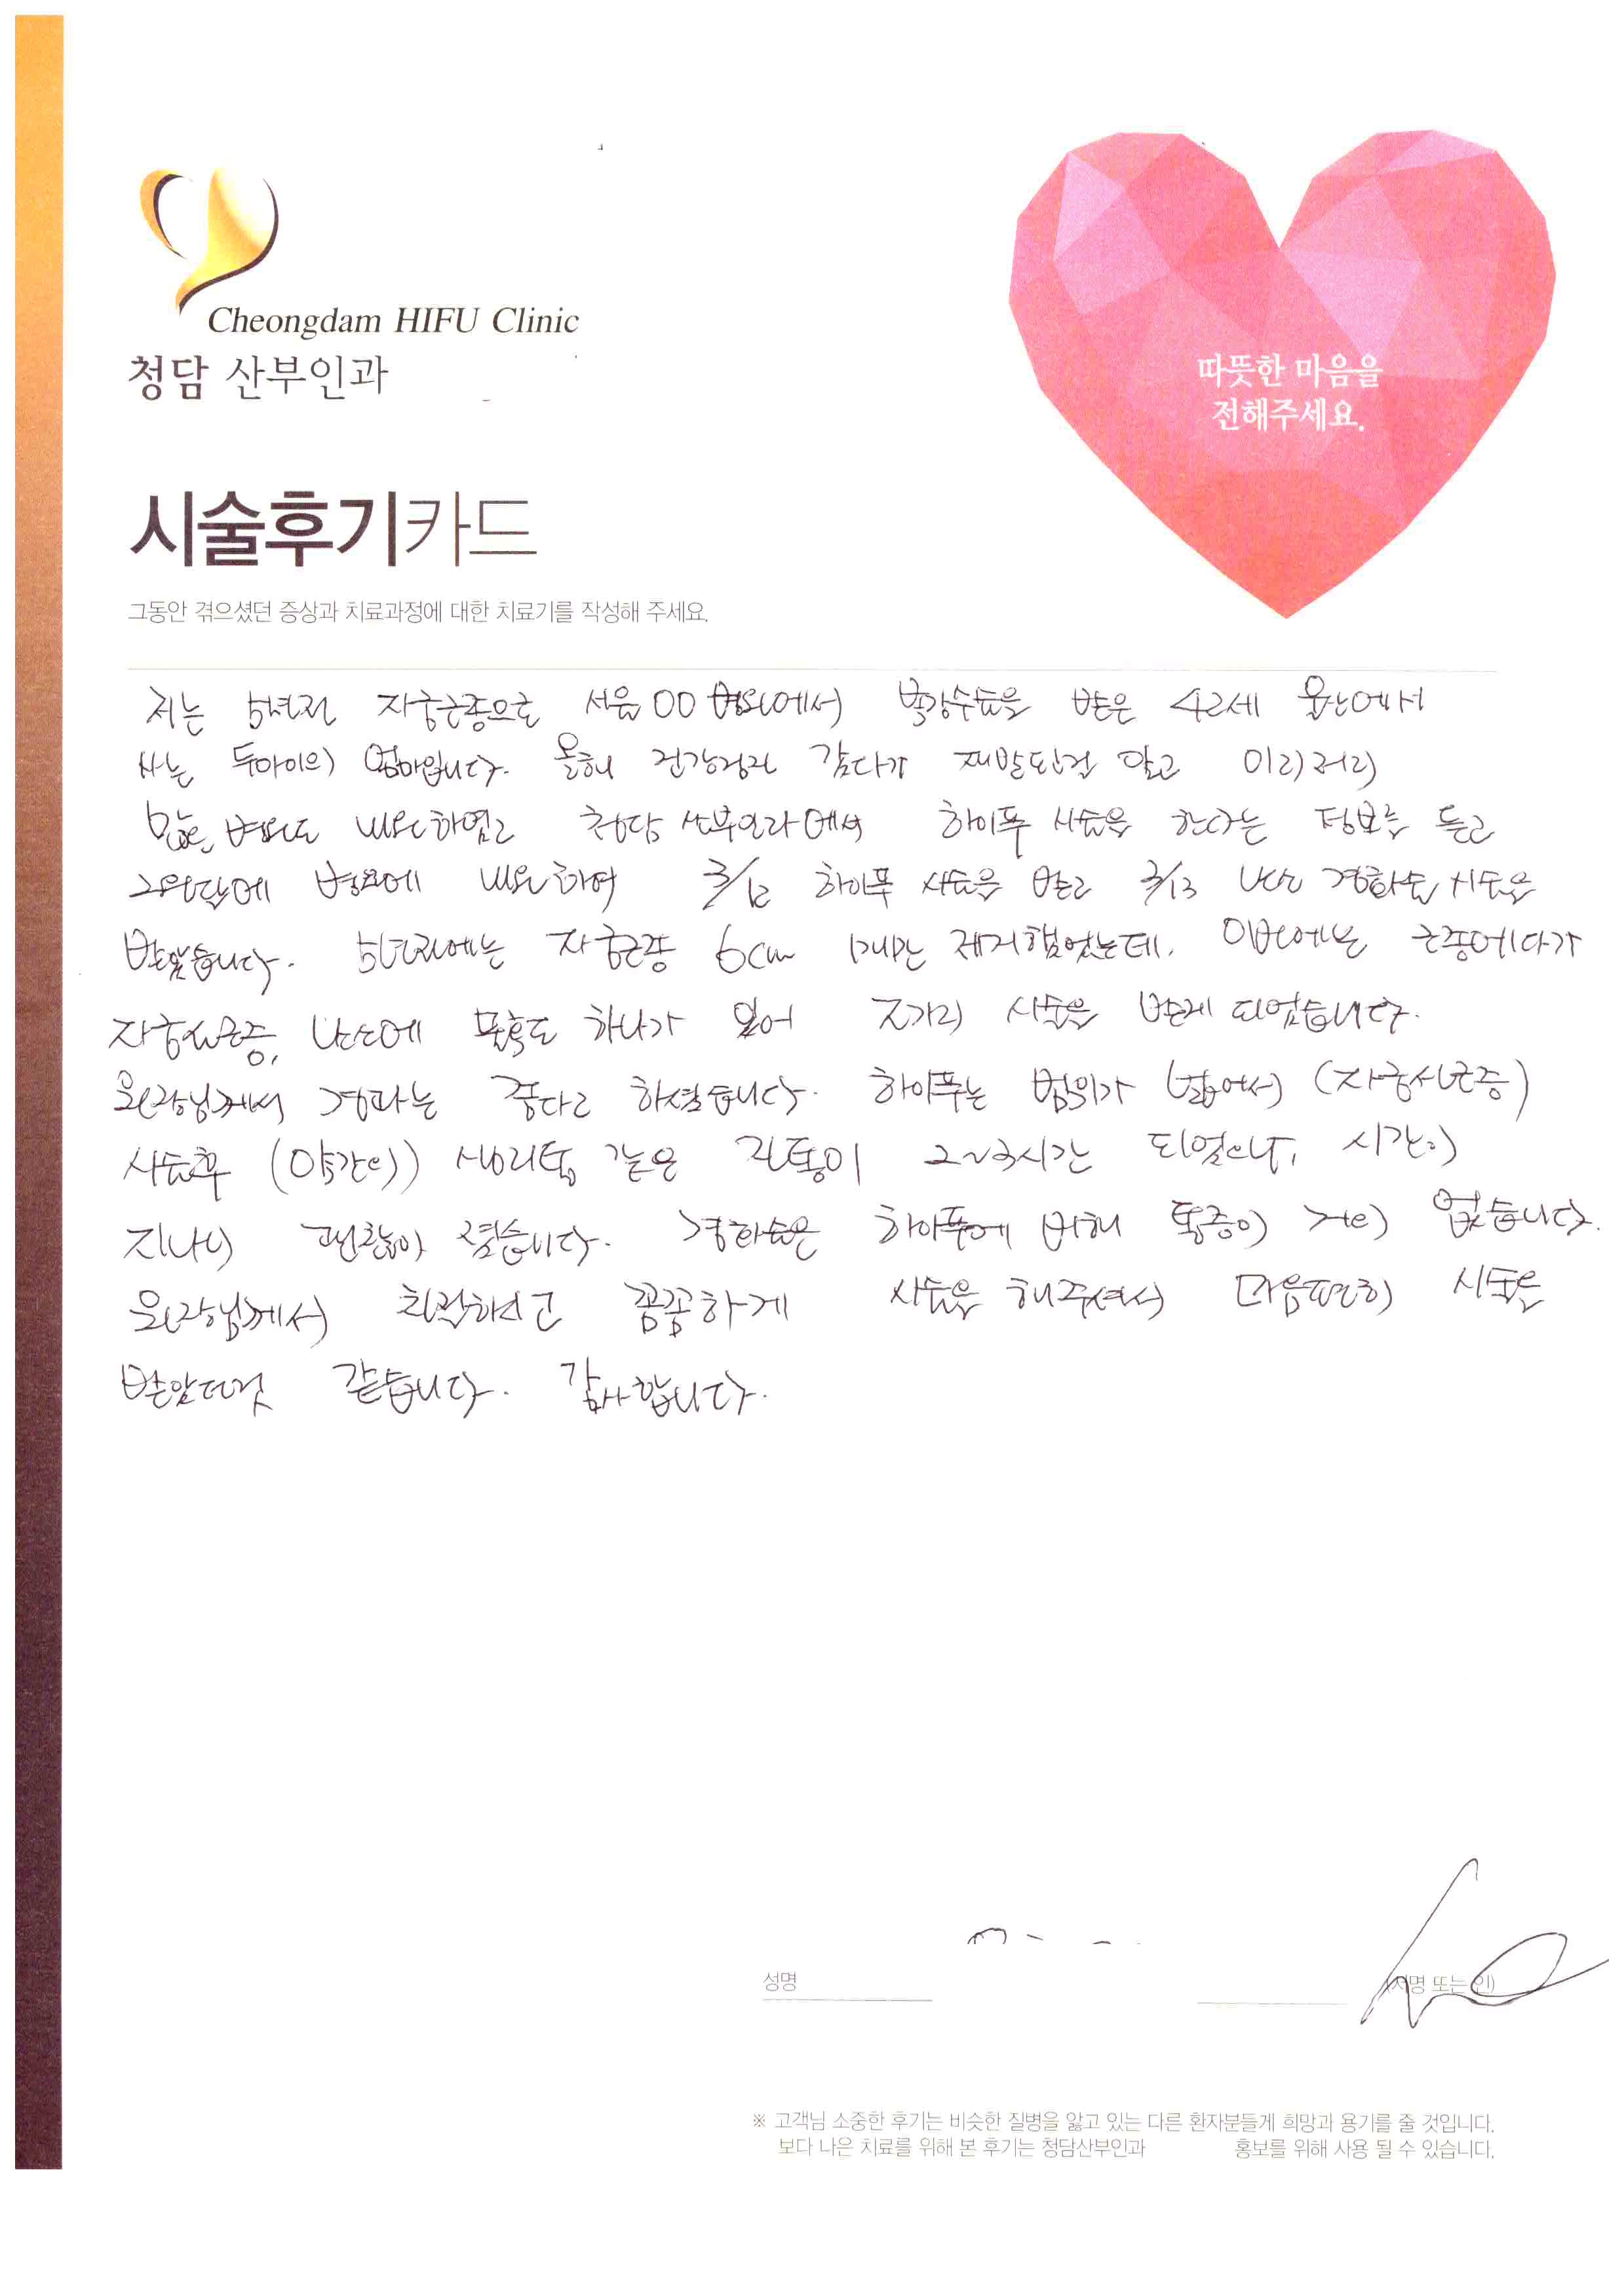 Cheongdam HIFU Clinic
청담 산부인과
따뜻한 마음을
전해주세요.
시술후기카드
그동안 겪으셨던 증상과 치료과정에 대한 치료기를 작성해 주세요.
저는 5년전 자궁근종으로 서울 00 병원에서 복강수술을 받은 42세 울산에서
사는 두아이의 엄마입니다. 올해 건강검진 갔다가 재발된걸 알고 이리저리
많은 병원도 내원하였고 청담 산부인과에서 하이푸 시술을 한다는 정보를 듣고
병원에 내원하여 3/12 하이푸 시술을 받고 3/13 난소 경화술 시술을
받았습니다. 5년전에는 자궁근종 6cm 1개만 제거했었는데, 이번에는 근종에다가
자궁선근증, 난소에 물혹도 하나가 있어 3가지 시술을 받게 되었습니다.
원장님께서 경과는 좋다고 하셨습니다. 하이푸는 범위가 넓어서 (자궁선근증)
시술후 (약간의) 생리통 같은 진통이 2~3시간 되었으나, 시간이
지나니 괜찮아 졌습니다. 경화술은 하이푸에 비해 통증이 거의 없습니다.
원장님께서 친절하시고 꼼꼼하게 시술을 해주셔서 마음편히 시술을
받았던것 같습니다. 감사합니다.
성명
(서명 또는 인)
※ 고객님 소중한 후기는 비슷한 질병을 앓고 있는 다른 환자분들게 희망과 용기를 줄 것입니다.
보다 나은 치료를 위해 본 후기는 청담산부인과 홍보를 위해 사용 될 수 있습니다.